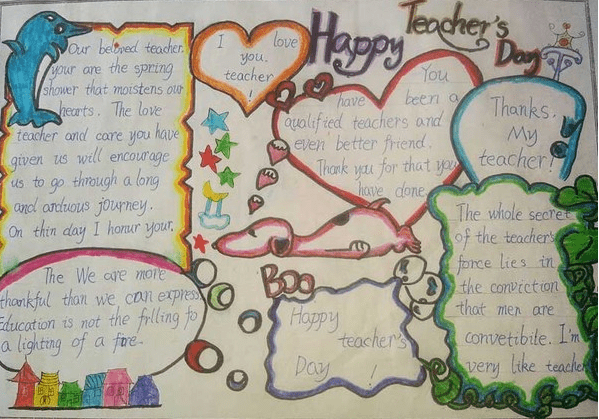 Happy Teacher's
Day
Our beloved teacher.
your are the spring
shower that moistens our
hearts. The love
teacher and care you have
given us will encourage
us to go through a long
and arduous journey.
On thin day I honur your.
I love
you,
teacher
!
You
have been a
qualified teachers and
even better friend.
Thank you for that you
have done.
Thanks.
My
teacher!
The We are more
thankful than we can express
Education is not the frlling fo
a lighting of a fire.
Boo
Happy
teacher's
Day !
The whole secret
of the teacher's
force lies in
the conviction
that men are
convetibite. I'm
very like teacher